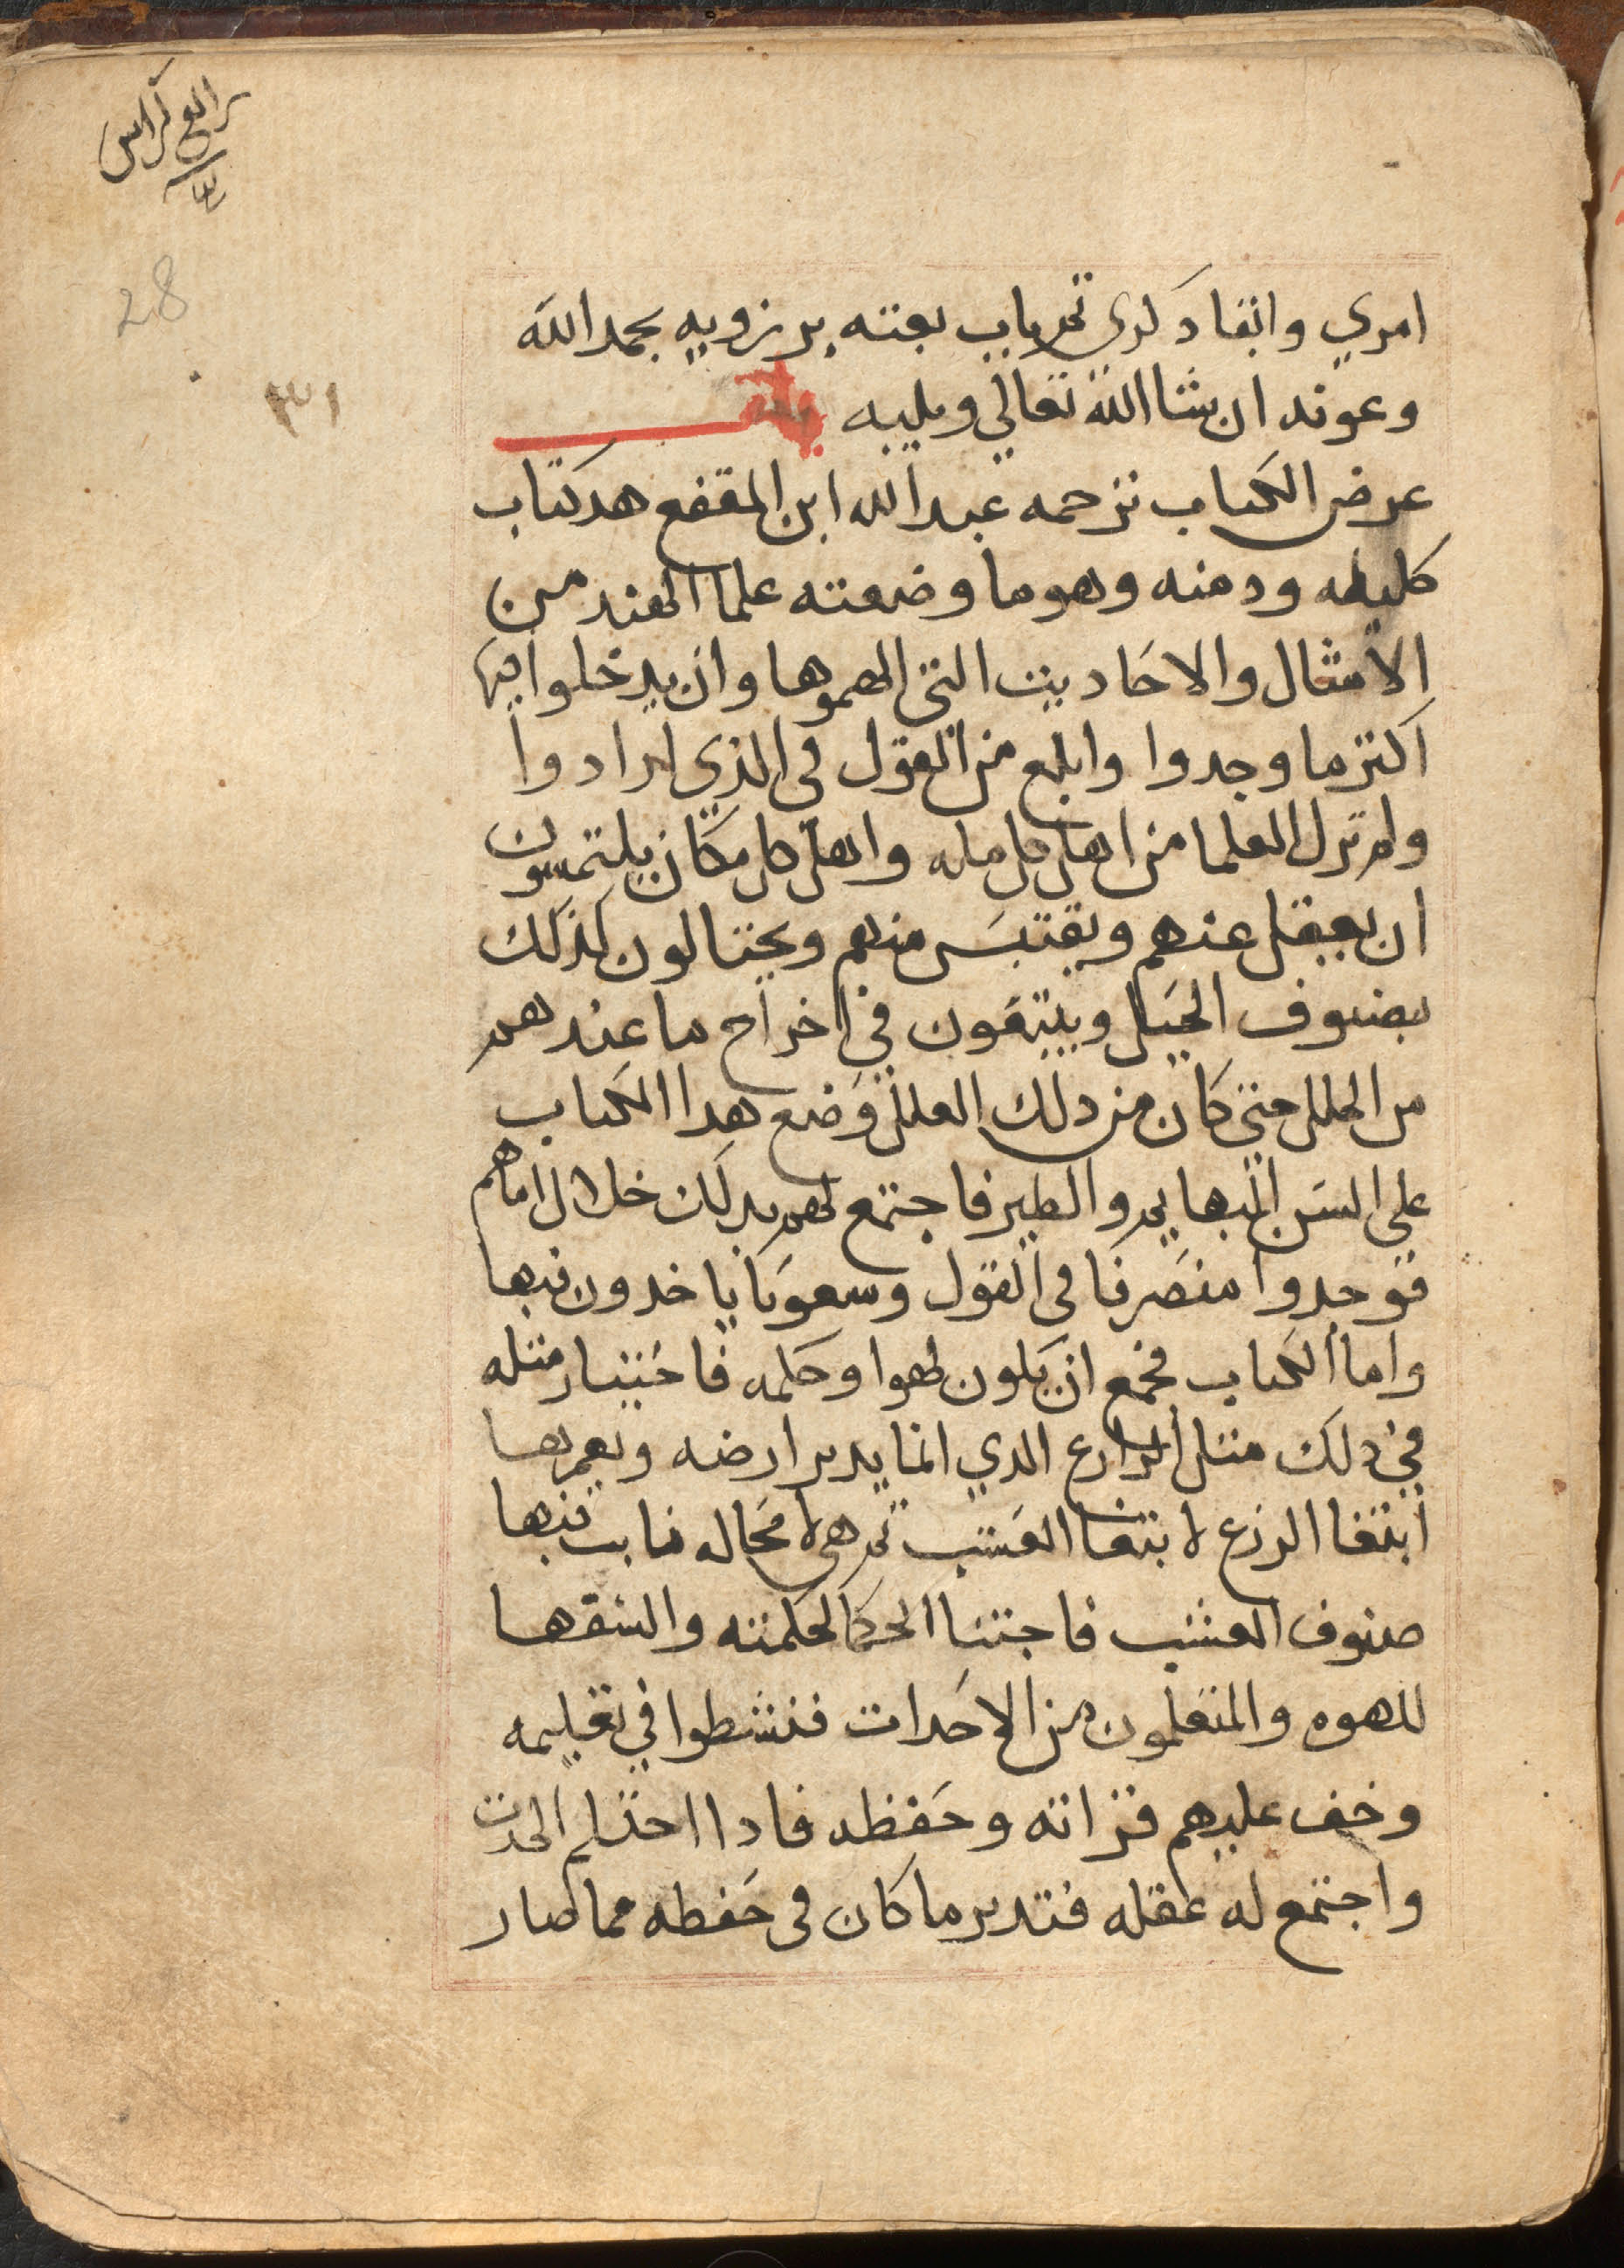 رابع كراس
28
٣١
امري وابقا دكري تم باب بعثه برزويه بحمد الله
وعونه ان شا الله تعالي ويليه باب
عرض الكتاب ترجمه عبد الله ابن المقفع هد كتاب
كليله ودمنه وهو ما وضعته علما الهند من
الامثال والاحاديث التي الهموها وان يدخلوا فيها
اكثر ما وجدوا وابلغ من القول في الذي ارادوا
ولم تزل العلما من اهل كل مله واهل كل مكان يلتمسون
ان يعقل عنهم ويقتبس منهم ويحتالون لذلك
بصنوف الحيل ويبتغون في اخراج ما عندهم
من العلل حتي كان من دلك العلل وضع هدا الكتاب
علي السن البهايم والطير فاجتمع لهم بدلك خلال اماهم
فوجدوا منصرفا في القول وسعوبا ياخدون فيها
واما الكتاب فجمع ان يكون لهوا وحكمه فاختيار مثله
في دلك مثل الزارع الدي انما يدبر ارضه ويعمرها
ابتغا الزرع لا ابتغا العشب تم هي لا محاله نابت فيها
صنوف العشب فاجتنا الحكما لحكمته والسقها
للهوه والمتعلمون من الاحدات فنشطوا في تعليمه
وخف عليهم قراته وحفظه فادا احتلم الحدت
واجتمع له عقله فتدبر ما كان في حفظه مما صار